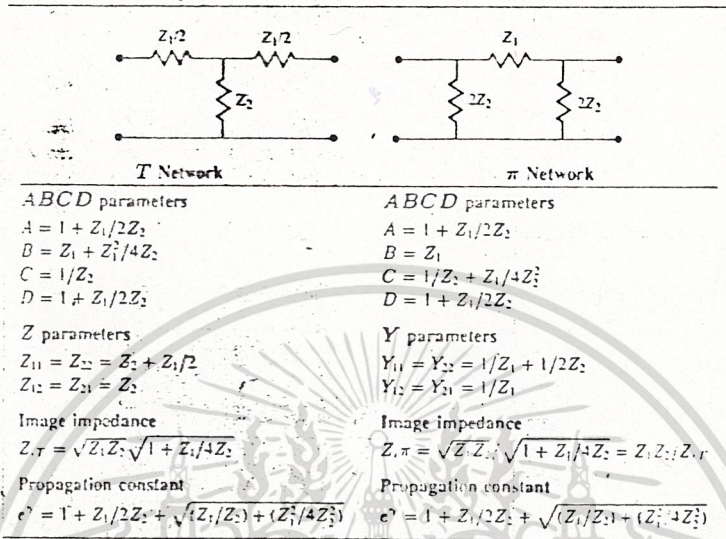 Z₁/2 Z₁/2
Z₂
T Network
Z₁
2Z₂ 2Z₂
π Network
ABCD parameters
A = 1 + Z₁/2Z₂
B = Z₁ + Z₁²/4Z₂
C = 1/Z₂
D = 1 + Z₁/2Z₂
Z parameters
Z₁₁ = Z₂₂ = Z₂ + Z₁/2
Z₁₂ = Z₂₁ = Z₂
Image impedance
Z_iT = √Z₁Z₂ √1 + Z₁/4Z₂
Propagation constant
e^γ = 1 + Z₁/2Z₂ + √(Z₁/Z₂) + (Z₁²/4Z₂²)
ABCD parameters
A = 1 + Z₁/2Z₂
B = Z₁
C = 1/Z₂ + Z₁/4Z₂²
D = 1 + Z₁/2Z₂
Y parameters
Y₁₁ = Y₂₂ = 1/Z₁ + 1/2Z₂
Y₁₂ = Y₂₁ = 1/Z₁
Image impedance
Z_iπ = √Z₁Z₂/√1 + Z₁/4Z₂ = Z₁Z₂/Z_iT
Propagation constant
e^γ = 1 + Z₁/2Z₂ + √(Z₁/Z₂) + (Z₁²/4Z₂²)